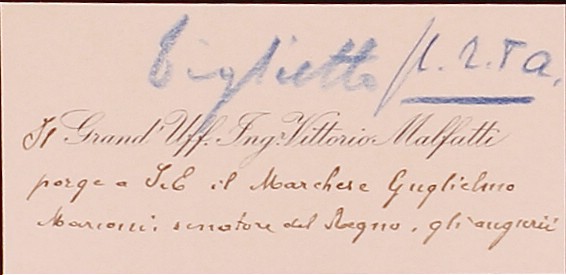 Biglietto p.r.T a.
Il Grand' Uff. Ing. Vittorio Malfatti
porge a S.E il Marchese Guglielmo
Marconi, senatore del Regno, gli augurii